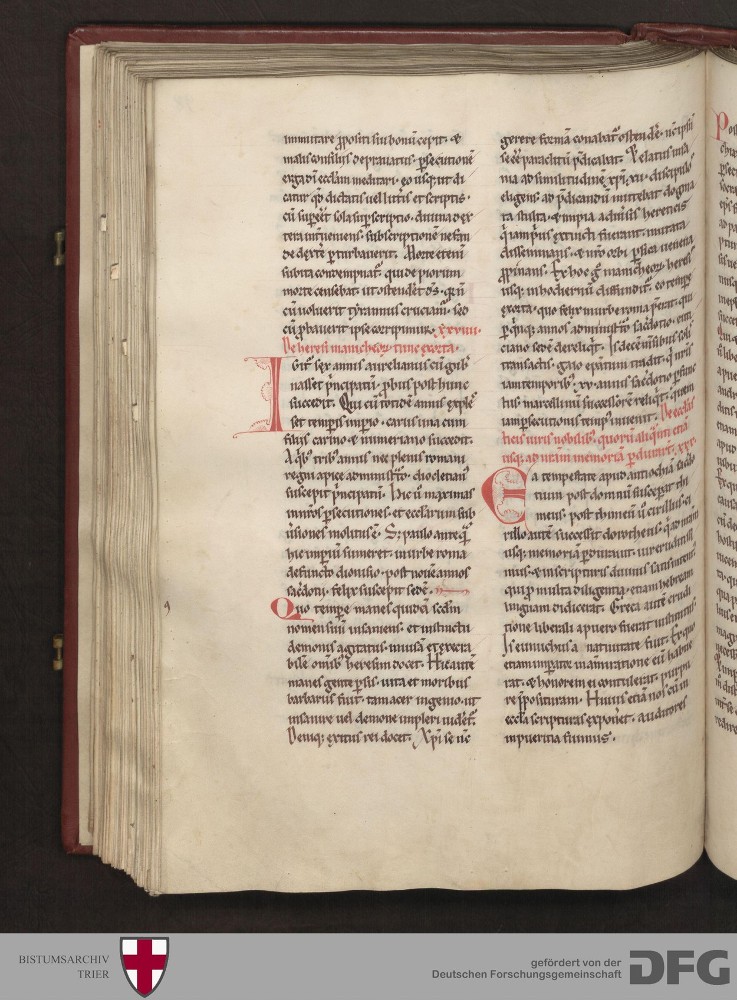 immutare ꝓpositi sui bonū cepit· &
malis consiliis depravatus· ꝑsecutionē
erga dei ecclām meditari· eo usq; ut di
catur qđ dictatis uel litt͛is et scriptis·
cū supeēt sola supscriptio· diuina dex
tera int͛ueniens· subscriptionē nefan
de dext͛e ꝑturbauerit. Morte etenī
subita condempnat͛ qui de piorum
morte censebat· ut ostenderet ds̄· qm̄
cū uoluerit tyrannus cruciam͛· sed
cū ꝓbauerit ipse corripimur. xxviiii·
De heresi manicheoꝝ tunc exorta·
Igit͛ sex annis aurelianus cū gub͛
nasset pͥncipatū· ꝓbus post hunc
succedit. Qui cū totidē annis exples
set temporis imperio· carus una cum
filiis carino & numeriano succedit.
A qͥb; tribꝰ annis nec plenis romani
regni apice administrͣto· dioclecianꝰ
suscepit pͥncipatū. Hic ū maximas
in nrōs ꝑsecutiones· et ecclārum sub
u͛siones molitus ē· S; paulo ante qͣ
hic imꝑiū sumeret· in urbe roma
defuncto dionisio· post nouē annos
sac͛dotii· felix suscepit sedē·
Quo tempe manes quidē scdm̄
nomen suū insaniens· et instinctu
demonis agitatus· inuisā et execra
bilē omībꝰ heresim docet. Hic autē
manes gente ꝑsis· uita et moribus
barbarus fuit· tam acer ingenio· ut
insanire uel demone impleri uideret͛.
Deniq; exitus rei docet. Xp̄i se nc̄
gerere formā conabat͛ ostendēe· nc̄ ipsū
se eē paraclitū p̄dicabat. Elatus insa
nia ad similitudinē xp̄i· xii· discipulos
eligens ad p̄dicandū mittebat dogma
ta stulta· & impia ad͛uersis hereticis
qͥ iampͥus extincti fuerant· mutata
disseminans· & nrō orbi ꝑsica uenena
ꝓpinans. Ex hoc gͦ manicheoꝝ heresis
usq; in hodiernū diffundit͛. eo tempe
exorta· quo felix in urbe roma p̄erat· qui
ꝑ qͥnq; annos administrͣto sac͛dotio· euti
ciano sedē dereliqͥt. Is decē mensibus solis
transactis· gaio epatum tradit· qͥ nrīs
iam temporibꝰ· xv· annis sac͛dotio ꝑfunc
tus· marcellinū successorē reliqͥt· quem
iam ꝑsecutionis tempꝰ inuenit. De ecclās
ticis uiris nobilibꝰ· quorū aliqͣnti etiā
usq; ad nrām memoriā ꝑdurant. xxx·
Ea tempestate apud antiochiā sac͛do
tium post domnū susceperat thi
meus· post thimeū ū cirillus· ci
rillo autē successit dorotheus· qͥ ad nrām
usq; memoriā ꝑdurauit· uir eruditissi
mus· & in scripturis diuinis satis intentꝰ·
qui ꝑ multa diligentia· etiam hebream
linguam didicerat. Greca autē erudi
tione liberali a puero fuerat institutus·
Is eunuchus a natiuitate fuit. Ex quo
etiam imꝑator in amiratione eū habue
rat· & honorem ei contulerat· purpu
re p̄posituram. Huius etiā nos cū in
ecclā scripturas exponeret· auditores
in puericia fuimus·
BISTUMSARCHIV
TRIER
gefördert von der
Deutschen Forschungsgemeinschaft
DFG